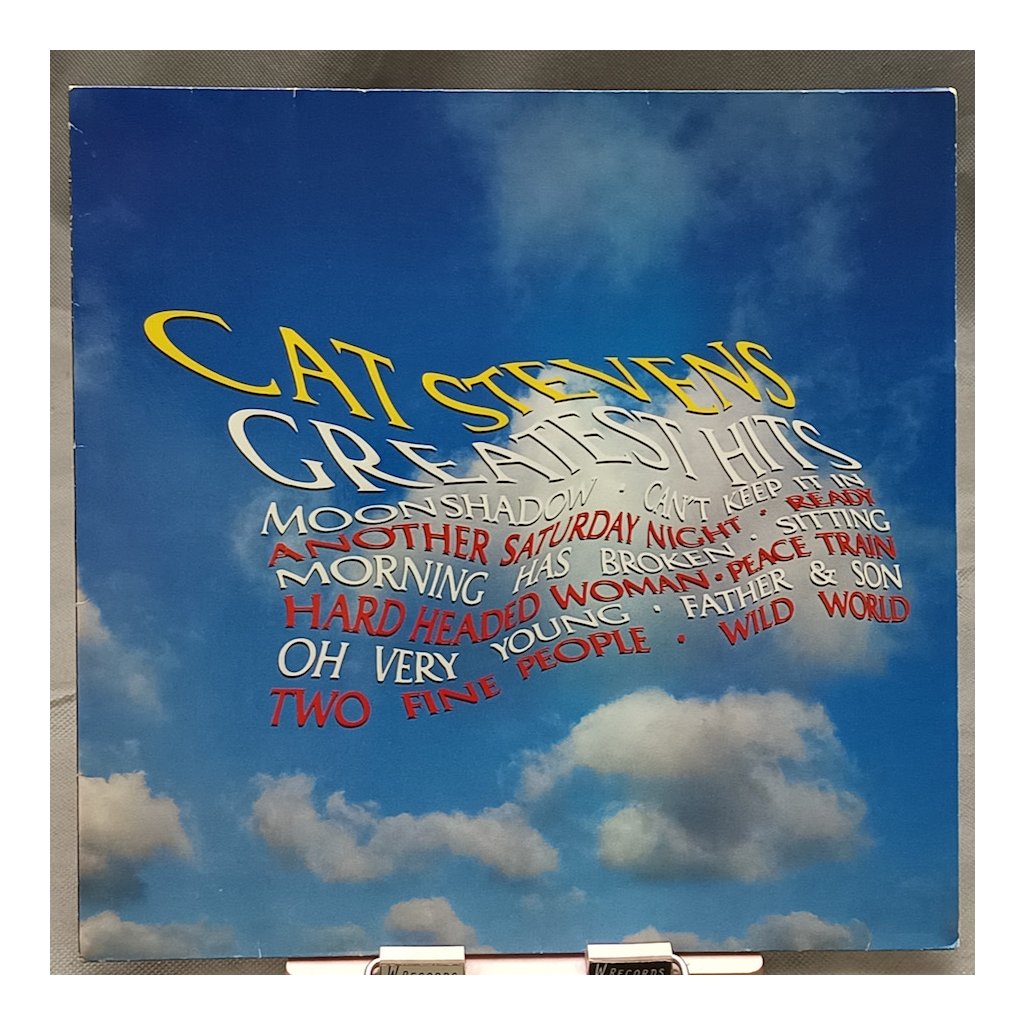 CAT STEVENS
GREATEST HITS
MOONSHADOW · CAN'T KEEP IT IN
ANOTHER SATURDAY NIGHT · READY
MORNING HAS BROKEN · SITTING
HARD HEADED WOMAN · PEACE TRAIN
OH VERY YOUNG · FATHER & SON
TWO FINE PEOPLE · WILD WORLD
W RECORDS
W RECORDS